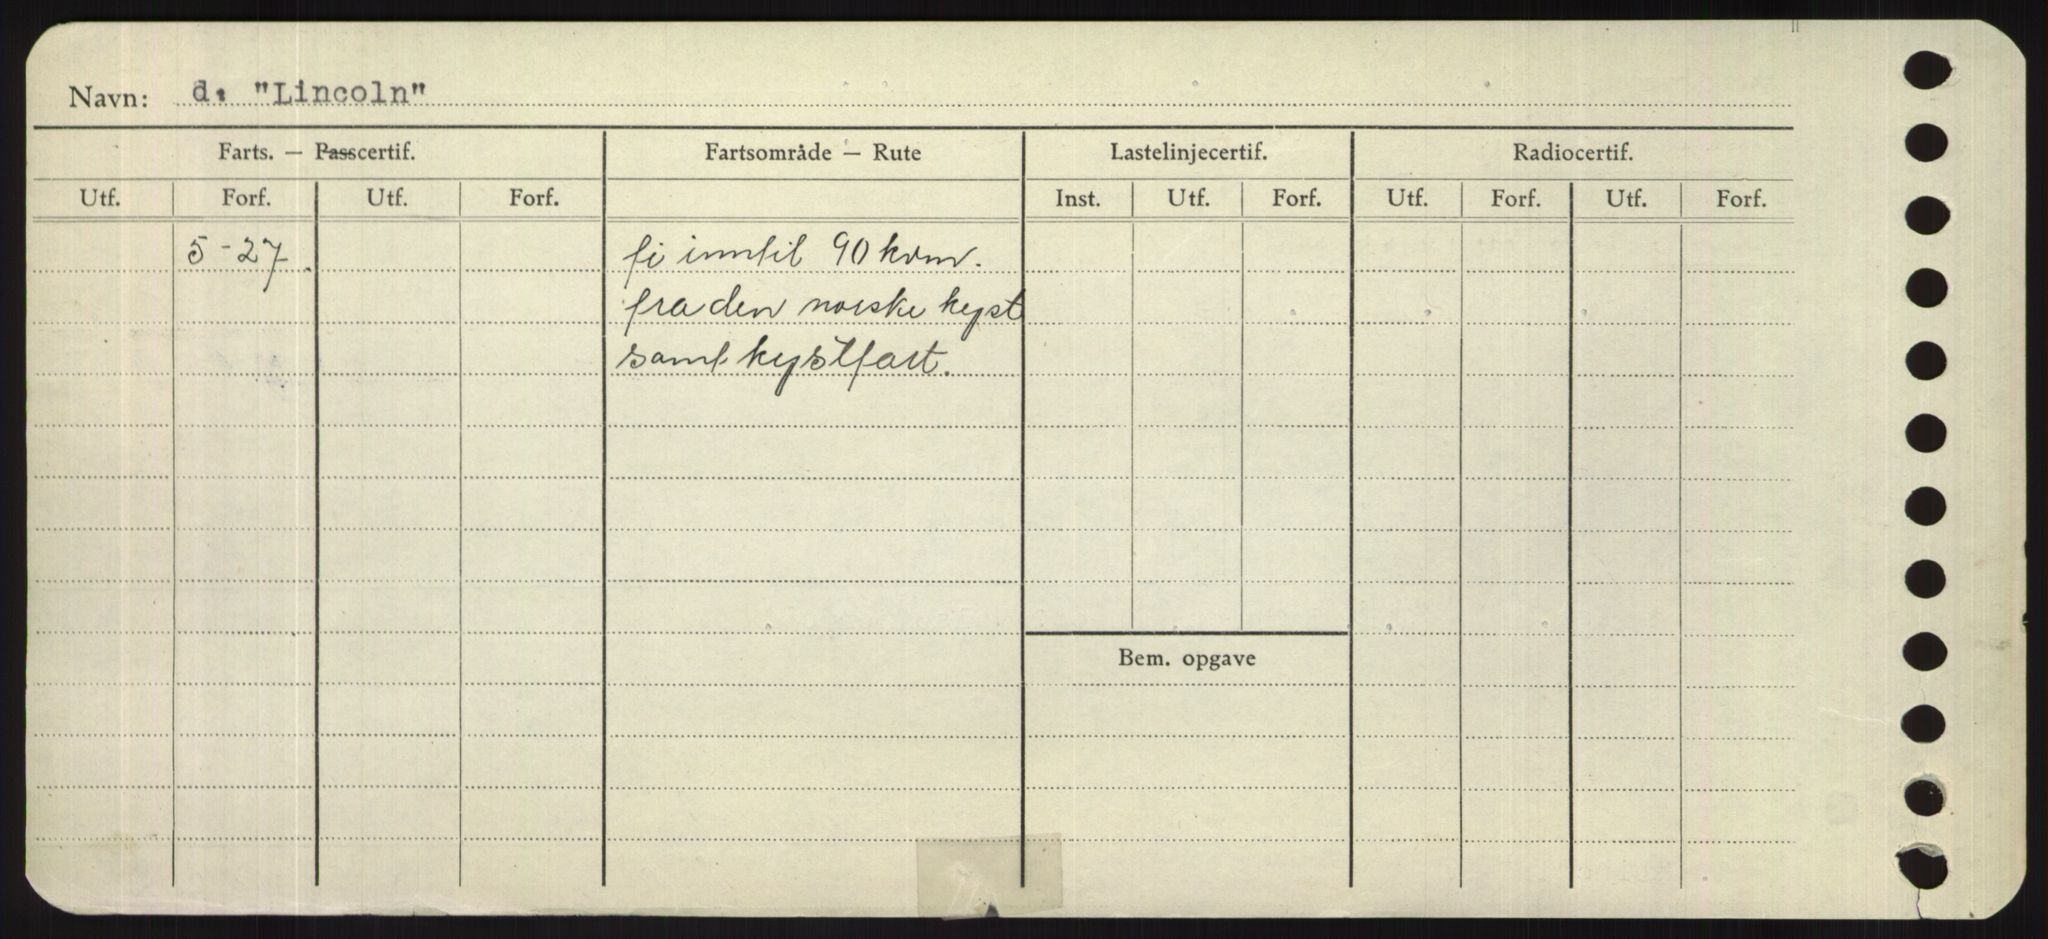 Navn: d. "Lincoln"
Farts. — Passcertif. Fartsområde — Rute Lastelinjecertif. Radiocertif.
Utf. Forf. Utf. Forf. Inst. Utf. Forf. Utf. Forf. Utf. Forf.
5-27 fi inntil 90 kvm.
fra den norske kyst
samt kystfart.
Bem. opgave